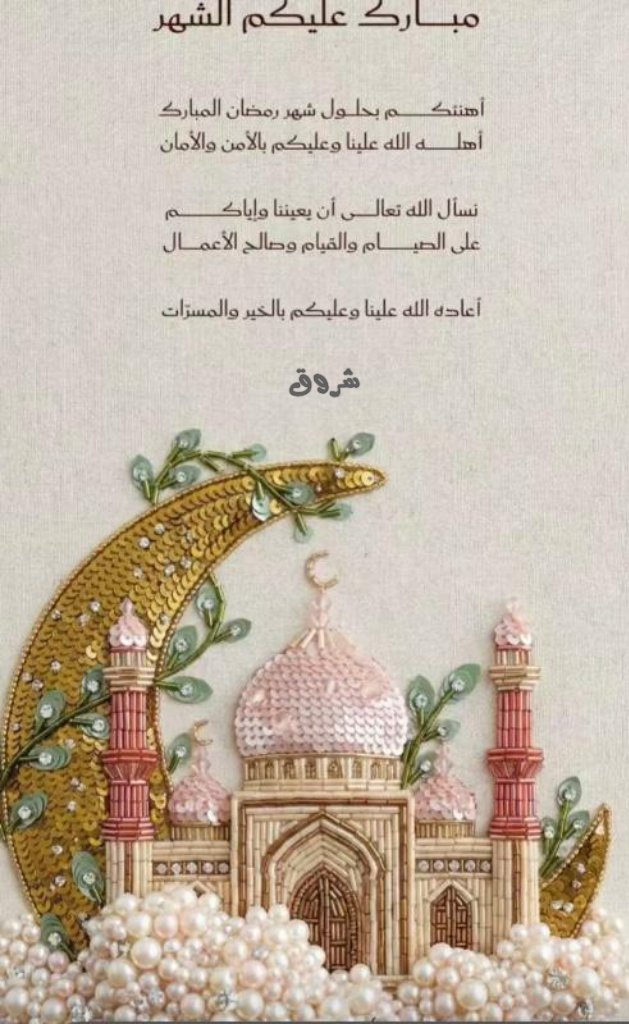 مبـــارك عليكم الشهر
أهنئكـــــم بحلـول شهر رمضان المبارك
أهلــــه الله علينا وعليكم بالأمن والأمان
نسأل الله تعالـــى أن يعيننا وإياكـــــم
على الصيـــام والقيام وصالح الأعمـــال
أعاده الله علينا وعليكم بالخير والمسرّات
شروق